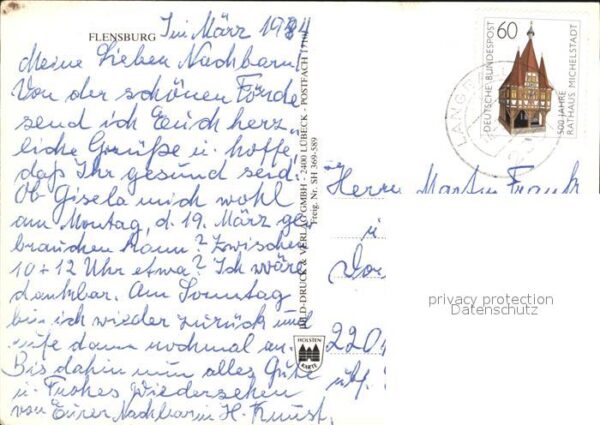 FLENSBURG
Im März 1984
Meine Lieben Nachbarn!
Von der schönen Förde
send ich Euch herz-
liche Grüße u. hoffe
daß Ihr gesund seid.
Ob Gisela mich wohl
am Montag, d. 19. März ge-
brauchen kann? Zwischen
10+12 Uhr etwa? Ich wäre
dankbar. Am Sonntag
bin ich wieder zurück und
rufe dann nochmal an.
Bis dahin nun alles Gute
u. Frohes Wiedersehen
von Eurer Nachbarin H. Knust.
BILD-DRUCK & VERLAG GMBH - 2400 LÜBECK - POSTFACH
Freig. Nr. SH 369-589
HOLSTEN
KARTE
60
DEUTSCHE BUNDESPOST
500 JAHRE
RATHAUS MICHELSTADT
Herrn Martin Frank
u.
220
privacy protection
Datenschutz